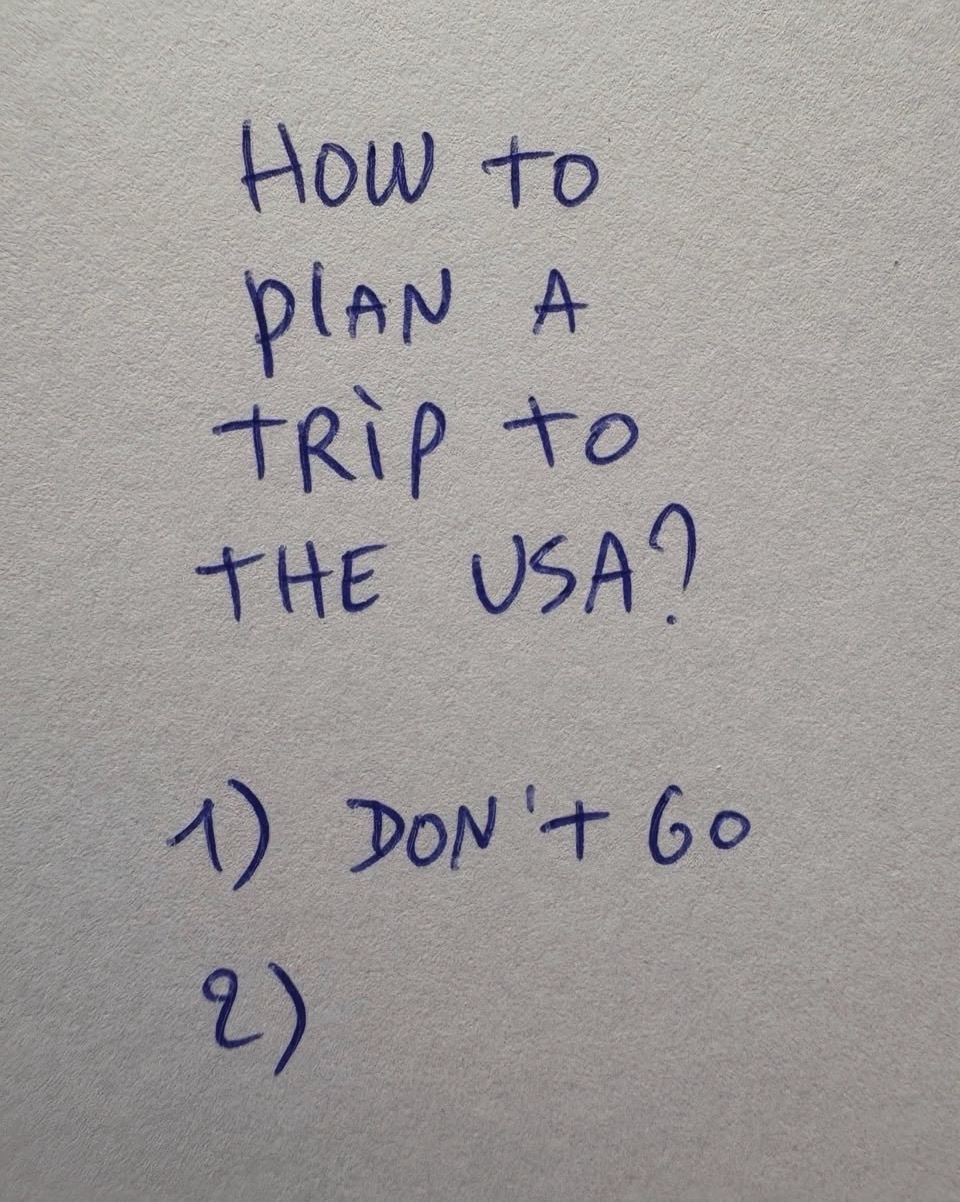 HOW TO
PlAN A
TRiP TO
THE USA?
1) DON'T GO
2)